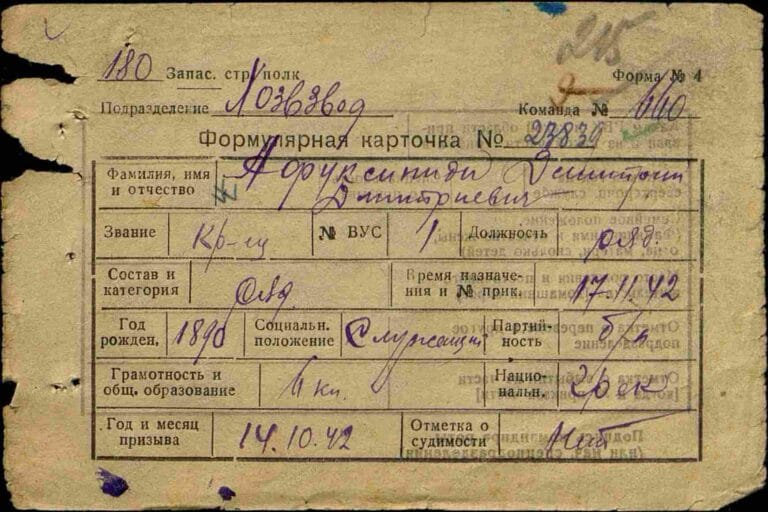 215
180 Запас. стр. полк Форма № 4
Подразделение Хозвзвод Команда № 660
Формулярная карточка № 23839
Фамилия, имя и отчество Дмитриевич
Звание Кр-ец № ВУС 1 Должность ряд.
Состав и категория ряд. Время назначения и № прик. 17.11.42
Год рожден. 1890 Социальн. положение Служащий Партийность б/п
Грамотность и общ. образование 4 кл. Национальн. Грек
Год и месяц призыва 14.10.42 Отметка о судимости Нет